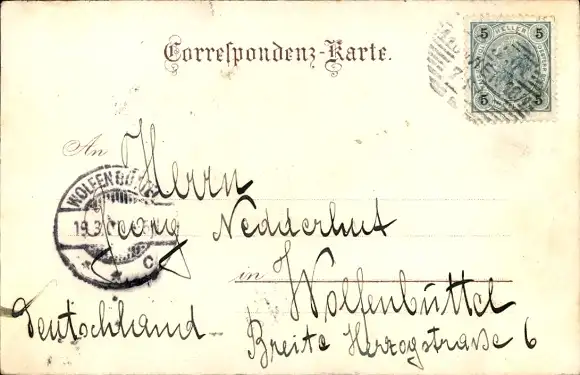 Correspondenz-Karte.
5 HELLER 5
5 5
An Herrn
WOLFENBÜTTEL
19.3.
* * c
Georg Nedderhut
in Wolfenbüttel
Deutschland
Breite Herzogstraße 6